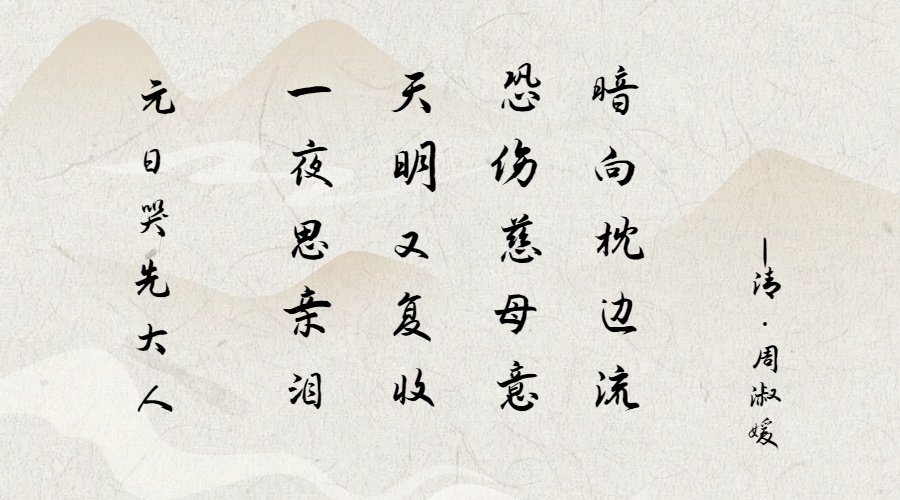 元日哭先大人
一夜思亲泪
天明又复收
恐伤慈母意
暗向枕边流
—清·周淑媛